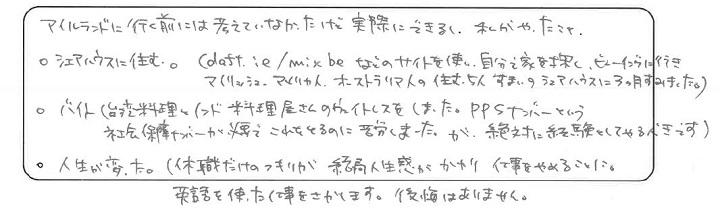 アイルランドに行く前には考えていなかったけど実際にできるし、私がやったこと。
○ シェアハウスに住む。(daft.ie/mixbeなどのサイトを使い、自分で家を探し、ビューイングに行き
アイリッシュ、アメリカ人、オーストラリア人の住む5人ずまいのシェアハウスに3ヶ月すみました。)
○ バイト(台湾料理とインド料理屋さんのウェイトレスをしました。PPSナンバーという
社会保障ナンバーが必要でこれをとるのに苦労しました。が、絶対に経験としてやるべきです)
○ 人生が変った。(休職だけのつもりが結局人生感がかわり仕事をやめることに。
英語を使った仕事をさがします。後悔はありません。